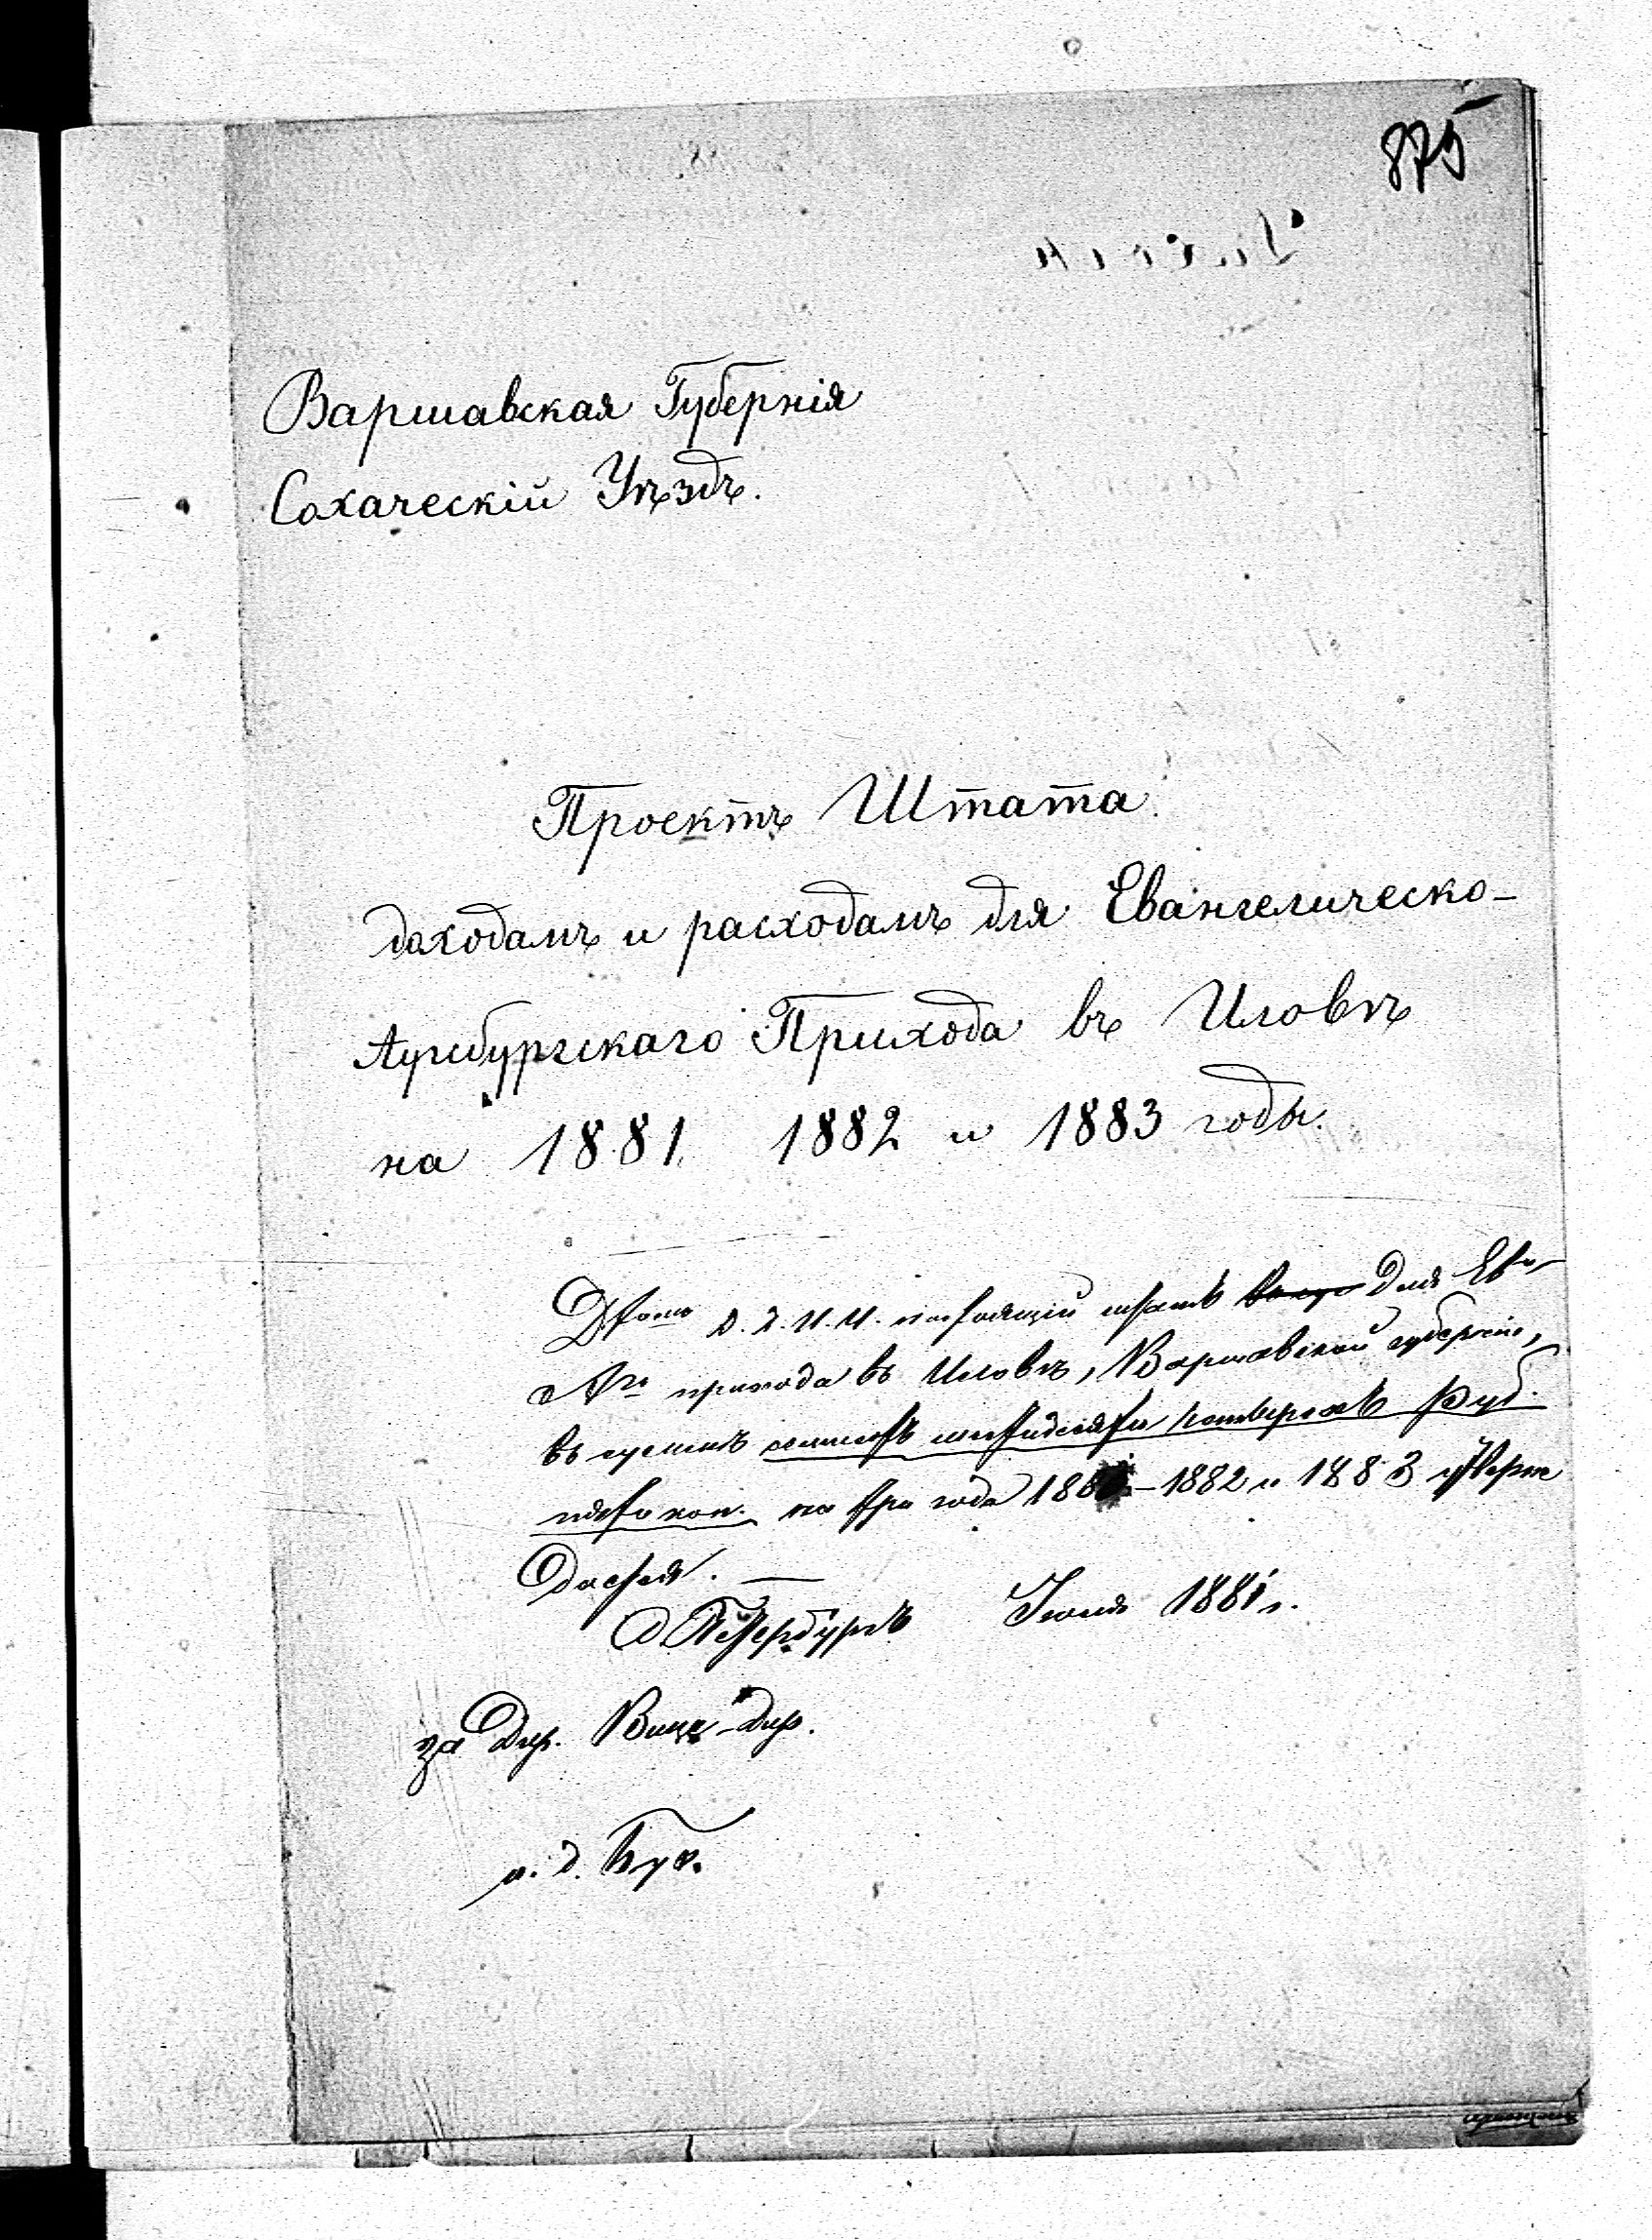 875
Варшавская Губернія
Сохаческій Уѣздъ.
Проектъ Штата
доходамъ и расходамъ для Евангелическо-
Аугсбургскаго Прихода въ Иловѣ
на 1881 1882 и 1883 годы.
Д. Д. И. И. настоящій штатъ для Ев°-
А го прихода въ Иловѣ, Варшавской губерніи,
въ суммѣ шестидесяти четырехъ руб.
пяти коп. на три года 188 -1882 и 1883 утверж
дается. —
С. Петербургъ Іюля 1881 г.
за Дир. Вице-Дир.
и. д. Бух.